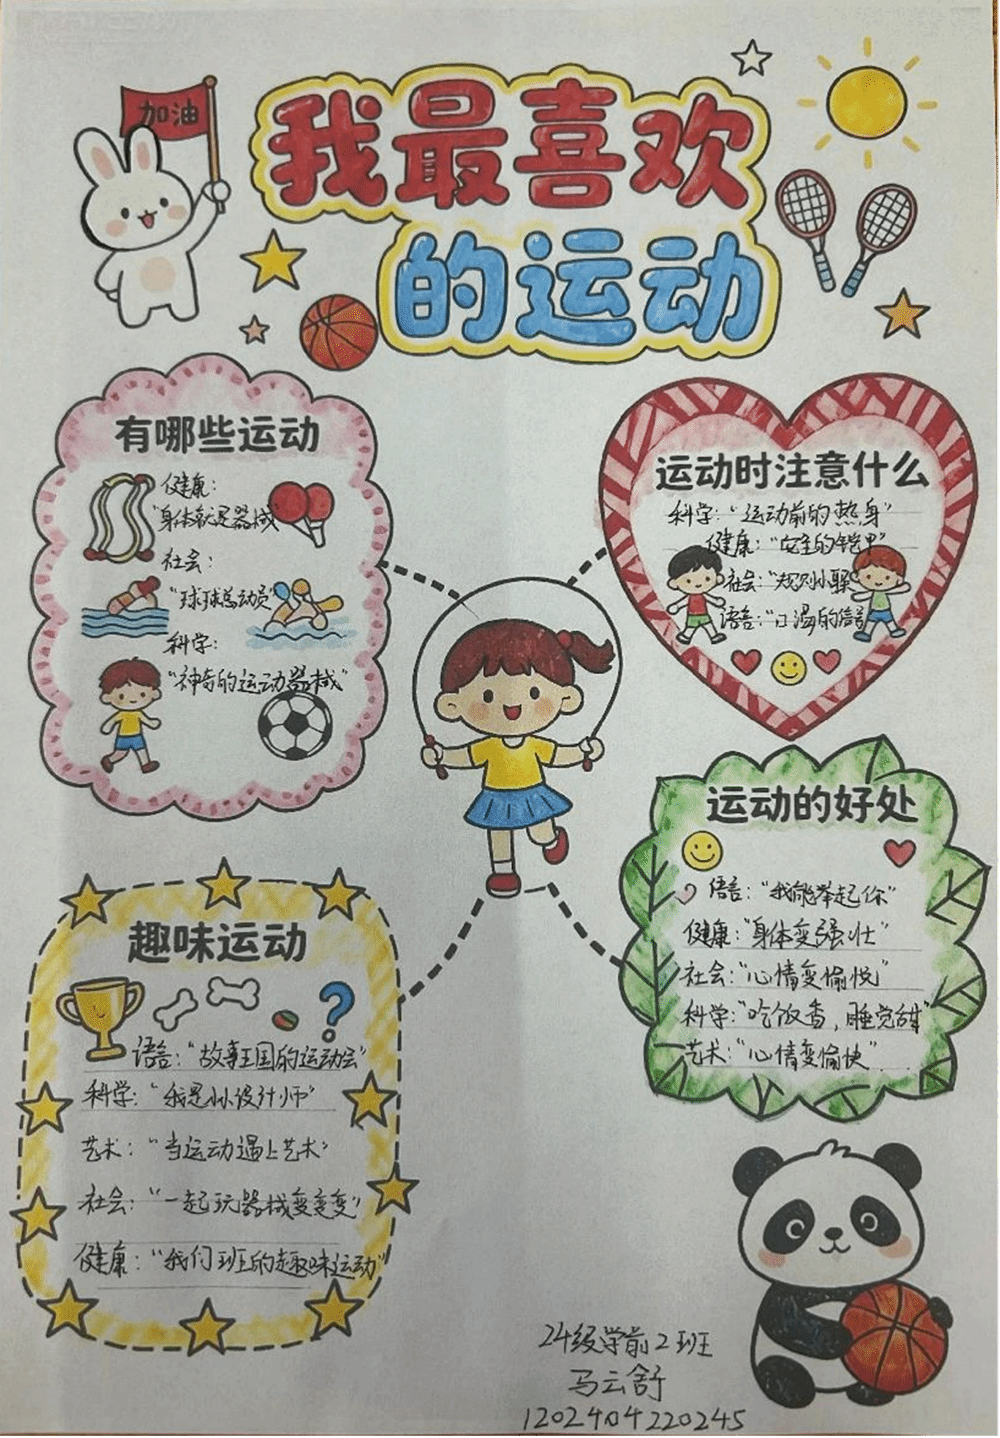 加油
我最喜欢
的运动
有哪些运动
健康：
"身体就是器械"
社会：
"球球总动员"
科学：
"神奇的运动器械"
运动时注意什么
科学："运动前的热身"
健康："安全的铠甲"
社会："规则小
语言："口渴的信
运动的好处
语言："我能举起你"
健康："身体变强壮"
社会："心情变愉悦"
科学："吃饭香，睡觉甜"
艺术："心情变愉快"
趣味运动
?
语言："故事王国的运动会"
科学："我是小小设计师"
艺术："当运动遇上艺术"
社会："一起玩器械变变变"
健康："我们班的趣味运动"
24级学前2班
马云舒
1202404220245